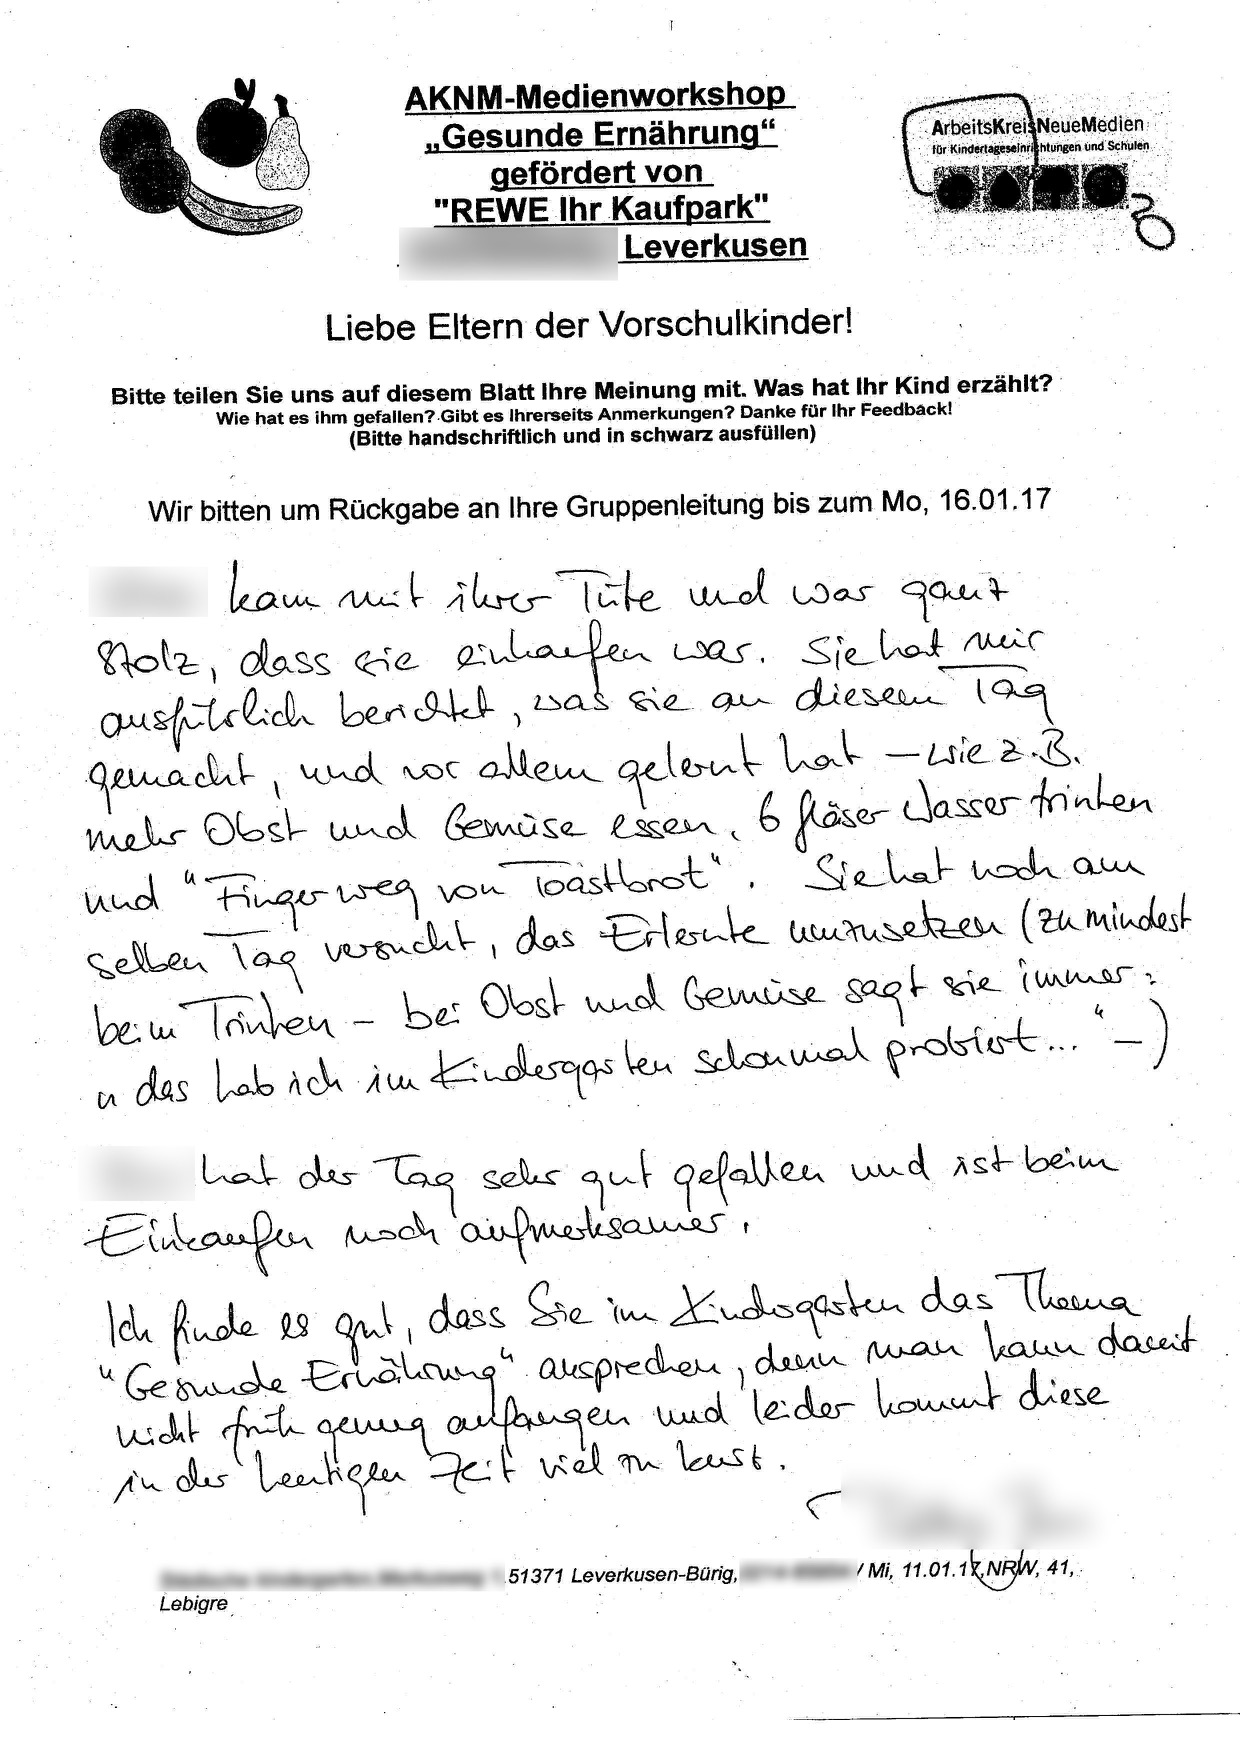 AKNM-Medienworkshop
„Gesunde Ernährung“
gefördert von
"REWE Ihr Kaufpark"
Leverkusen
ArbeitsKreisNeueMedien
für Kindertageseinrichtungen und Schulen
Liebe Eltern der Vorschulkinder!
Bitte teilen Sie uns auf diesem Blatt Ihre Meinung mit. Was hat Ihr Kind erzählt?
Wie hat es ihm gefallen? Gibt es Ihrerseits Anmerkungen? Danke für Ihr Feedback!
(Bitte handschriftlich und in schwarz ausfüllen)
Wir bitten um Rückgabe an Ihre Gruppenleitung bis zum Mo, 16.01.17
kam mit ihrer Tüte und war ganz
stolz, dass sie einkaufen war. Sie hat mir
ausführlich berichtet, was sie an diesem Tag
gemacht, und vor allem gelernt hat – wie z.B.
mehr Obst und Gemüse essen, 6 Gläser Wasser trinken
und "Finger weg von Toastbrot". Sie hat noch am
selben Tag versucht, das Erlernte umzusetzen (zumindest
beim Trinken – bei Obst und Gemüse sagt sie immer:
"das hab ich im Kindergarten schonmal probiert..." –)
hat der Tag sehr gut gefallen und ist beim
Einkaufen noch aufmerksamer.
Ich finde es gut, dass Sie im Kindergarten das Thema
"Gesunde Ernährung" ansprechen, denn man kann damit
nicht früh genug anfangen und leider kommt diese
in der heutigen Zeit viel zu kurz.
51371 Leverkusen-Bürig, / Mi, 11.01.17, NRW, 41,
Lebigre